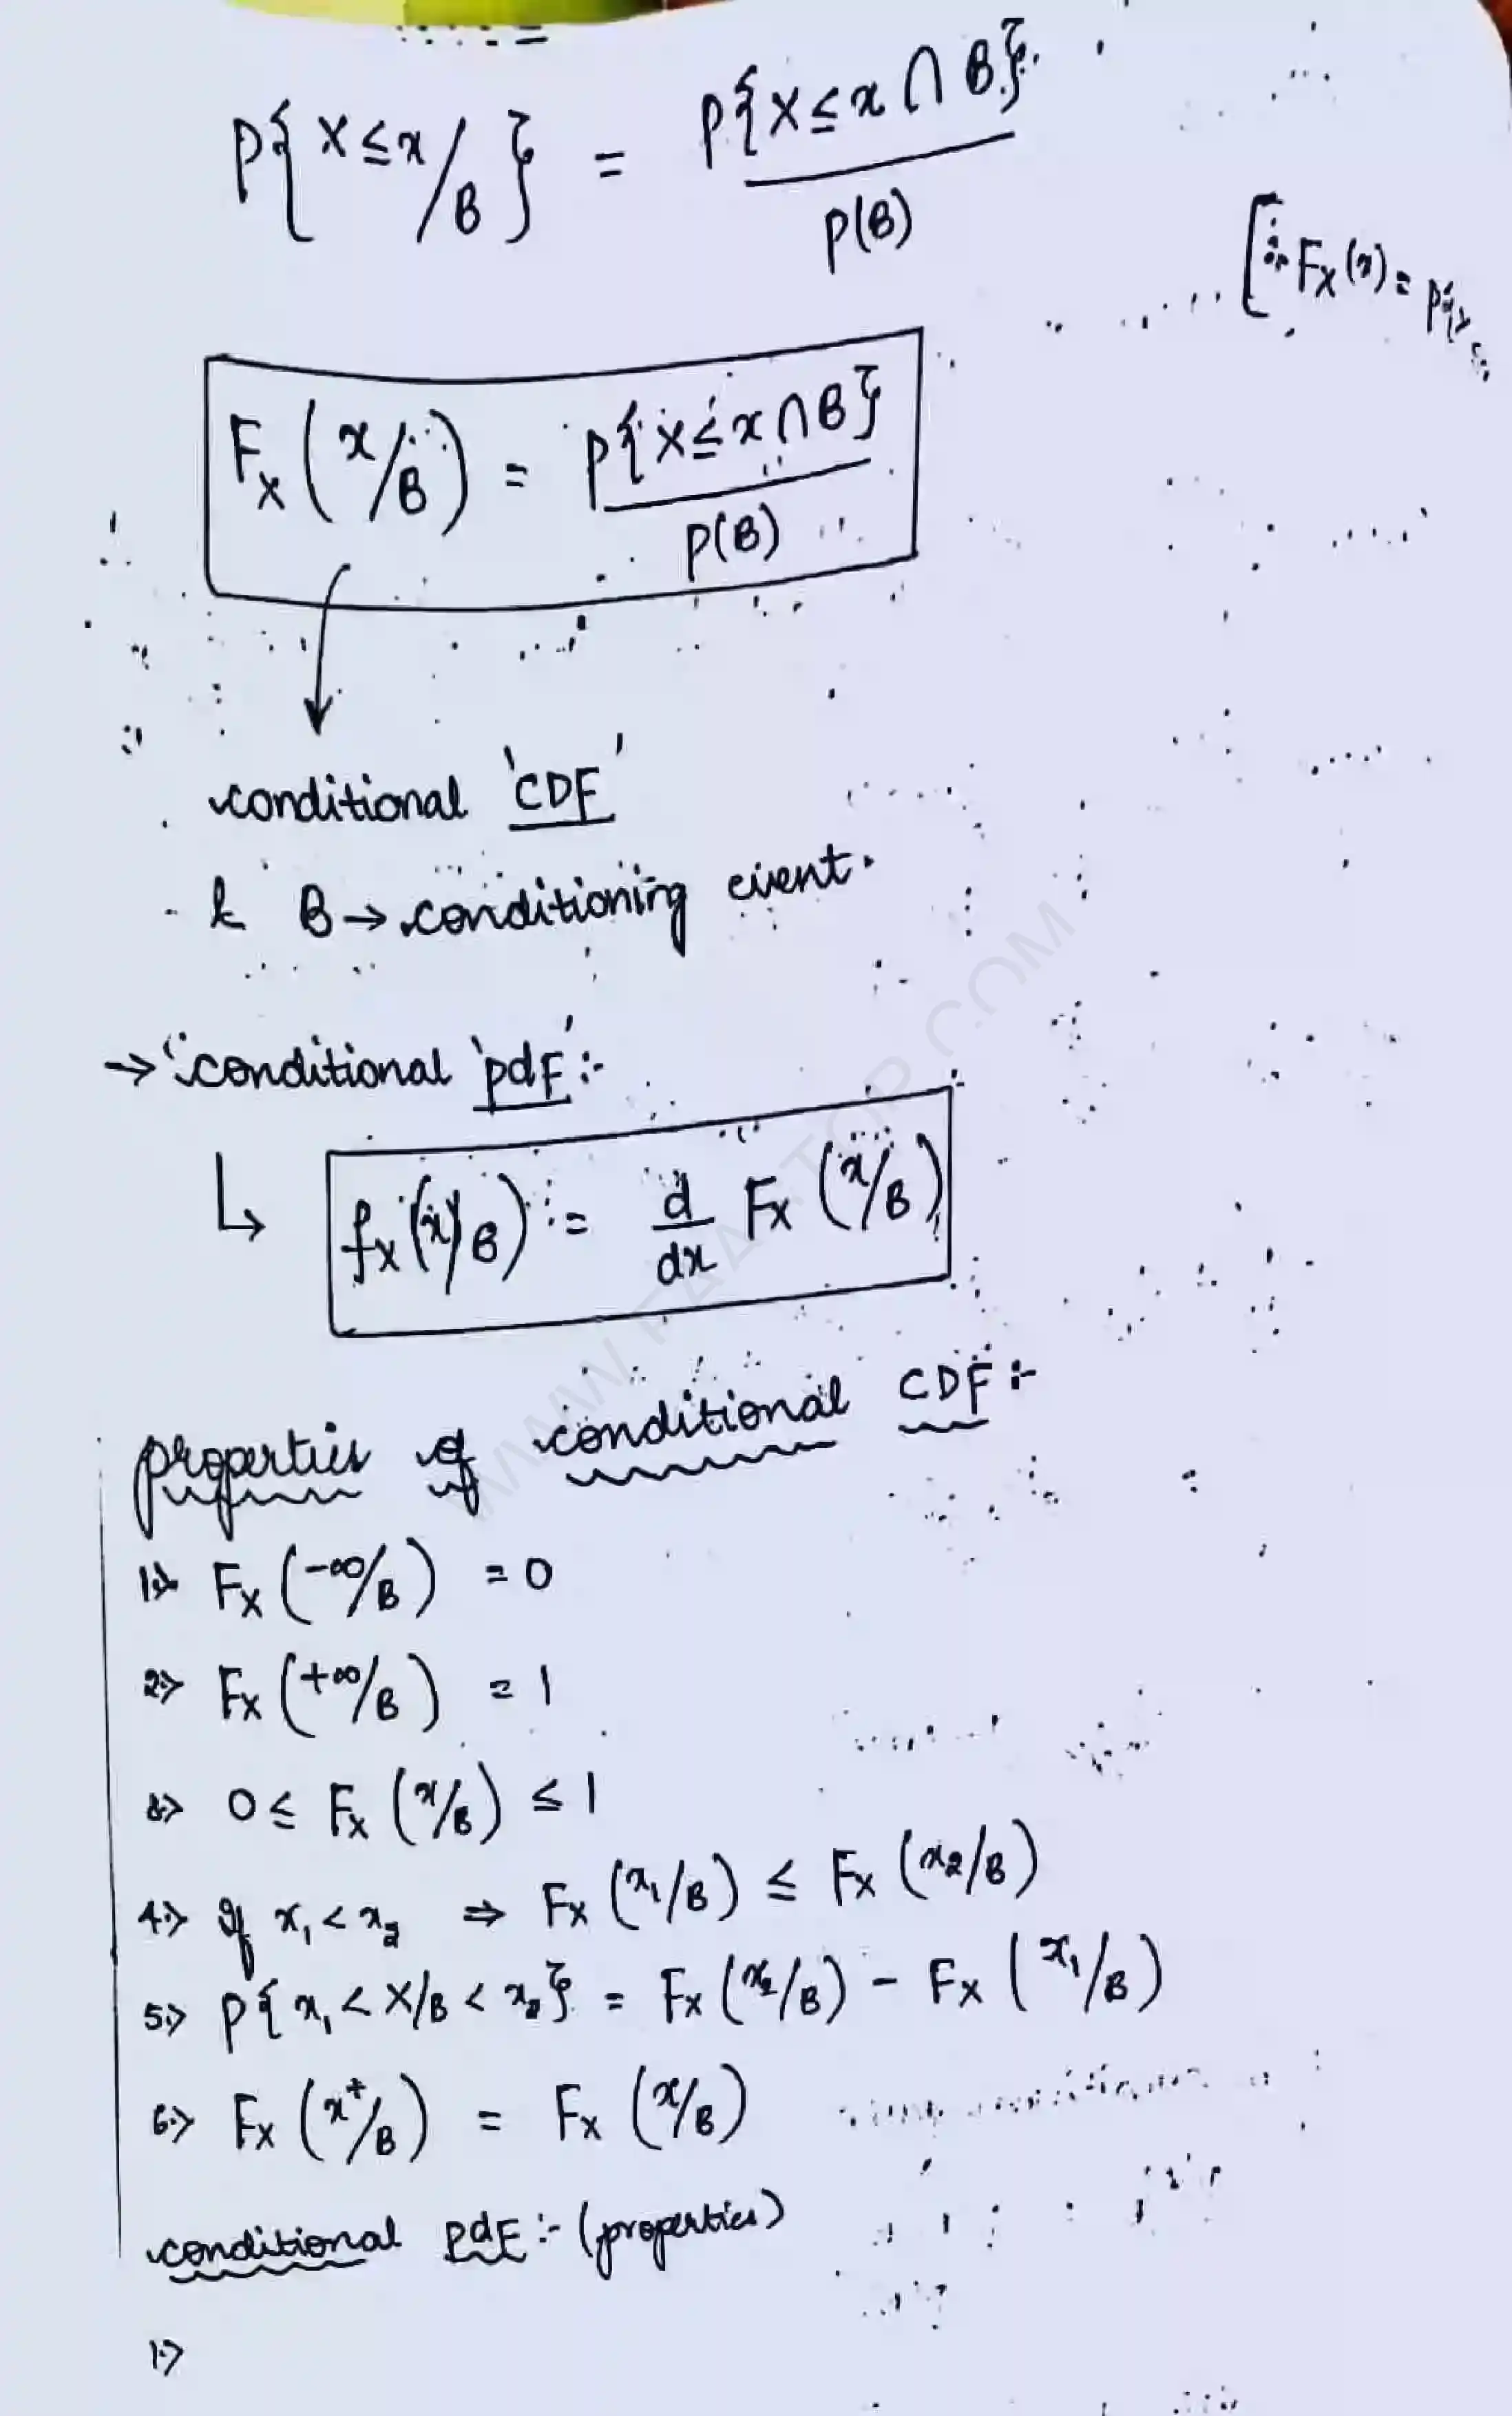 P{X≤x/B} = P{X≤x∩B}/P(B)
[∵ Fx(x) =
Fx(x/B) = P{X≤x∩B}/P(B)
conditional 'CDF'
& B → conditioning event.
→ conditional 'pdf' :-
↳ fx(x/B) = d/dx Fx(x/B)
properties of conditional CDF :-
1.> Fx(-∞/B) = 0
2.> Fx(+∞/B) = 1
3.> 0 ≤ Fx(x/B) ≤ 1
4.> If x₁ < x₂ ⇒ Fx(x₁/B) ≤ Fx(x₂/B)
5.> P{x₁ < X/B < x₂} = Fx(x₂/B) - Fx(x₁/B)
6.> Fx(x⁺/B) = Fx(x/B)
conditional PdF :- (properties)
1.>